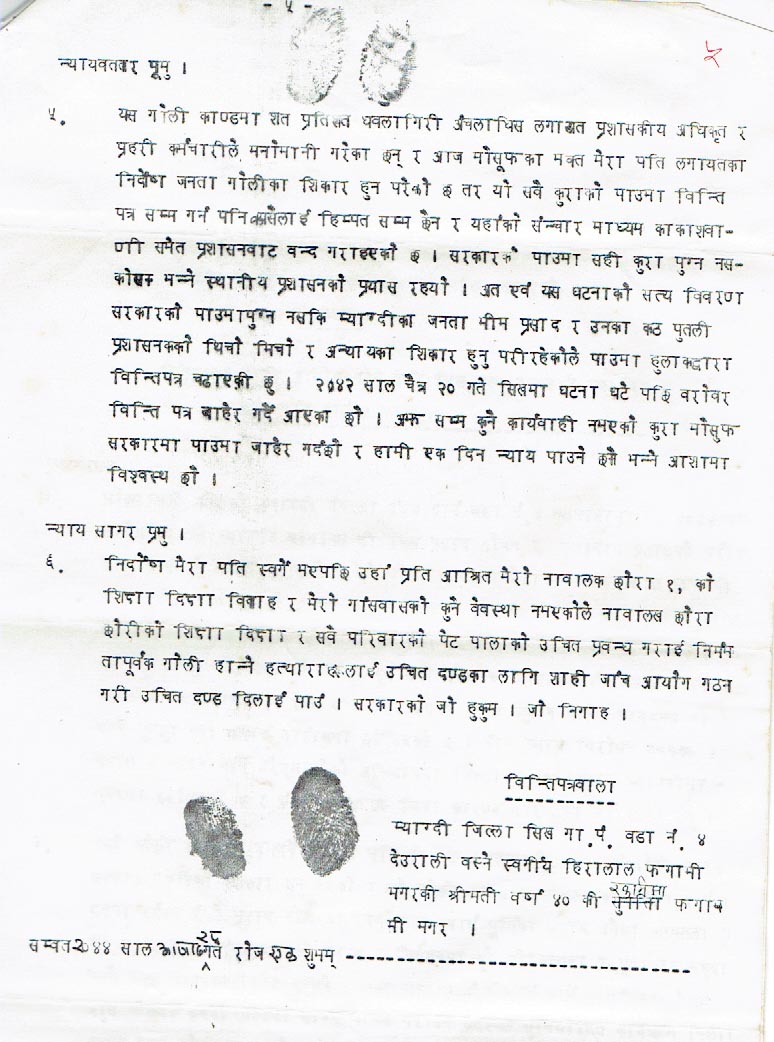 - ५ -
५
न्यायवतार प्रभु ।
५. यस गोली काण्डमा शत प्रतिसत धवलागिरी अंचलाधिस लगायत प्रशासकीय अधिकृत र
प्रहरी कर्मचारीले मनोमानी गरेका छन् र आज मौसूफका भक्त मेरा पति लगायतका
निर्दोष जनता गोलीका शिकार हुन परेको छ तर यो सवै कुराको पाउमा विन्ति
पत्र सम्म गर्न पनि कसैलाई हिम्पत सम्म छैन र यहाँको संन्चार माध्यम काकाशवा-
णी समेत प्रशासनवाट वन्द गराइएको छ । सरकारको पाउमा सही कुरा पुग्न नस-
कोस भन्ने स्थानीय प्रशासनको प्रयास रहयो । अत एवं यस घटनाको सत्य विवरण
सरकारको पाउमापुग्न नसकि म्याग्दीका जनता भीम प्रसाद र उनका कठ पुतली
प्रशासनकको थिचो मिचो र अन्यायका शिकार हुनु परीरहेकोले पाउमा हुलाकद्वारा
विन्तिपत्र चढाएकी छु । २०४२ साल चैत्र २० गते सिखमा घटना घटे पछि वरोवर
विन्ति पत्र जाहेर गर्दै आएका छौं । अझ सम्म कुनै कार्यवाही नभएको कुरा मौसुफ
सरकारमा पाउमा जाहेर गर्दछौं र हामी एक दिन न्याय पाउने छौं भन्ने आशामा
विश्वस्थ छौं ।
न्याय सागर प्रभु ।
६. निर्दोष मेरा पति स्वर्गे भएपछि उहाँ प्रति आश्रित मेरो नावालक छोरा १, को
शिक्षा दिक्षा विवाह र मेरो गाँसवासको कुनै वेवस्था नभएकोले नावालख छोरा
छोरीको शिक्षा दिक्षा र सवै परिवारको पेट पालाको उचित प्रवन्ध गराई निर्मम
तापूर्वक गोली हान्ने हत्याराहरुलाई उचित दण्डका लागि शाही जाँच आयोग गठन
गरी उचित दण्ड दिलाई पाउँ । सरकारको जो हुकुम । जो निगाह ।
विन्तिपत्रवाला
म्याग्दी जिल्ला सिख गा.पं. वडा नं. ४
देउराली वस्ने स्वर्गीय हिरालाल फगामी
मगरकी श्रीमती वर्ष ४० की फगाम
मी मगर ।
सम्वत २०४४ साल २८ गते रोज शुभम्